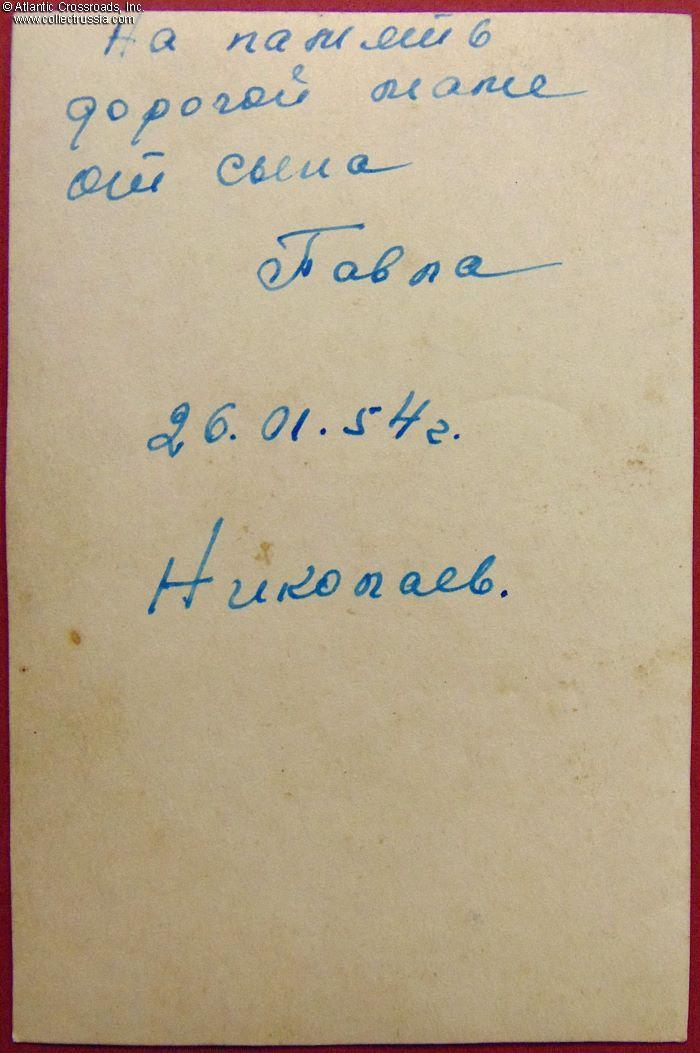 © Atlantic Crossroads, Inc.
www.collectrussia.com
На память
дорогой маме
от сына
Павла
26.01.54г.
Николаев.